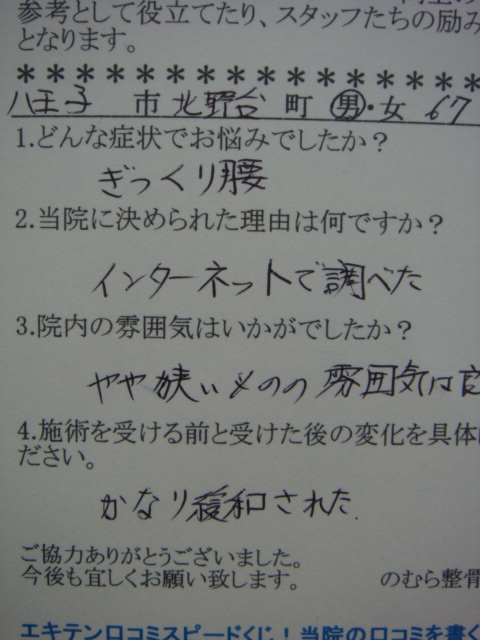 参考として役立てたり、スタッフたちの励み
となります。
****************
八王子 市 北野台 町 男・女 67
1.どんな症状でお悩みでしたか?
ぎっくり腰
2.当院に決められた理由は何ですか?
インターネットで調べた
3.院内の雰囲気はいかがでしたか?
やや狭いものの雰囲気は良
4.施術を受ける前と受けた後の変化を具体
ださい。
かなり緩和された.
ご協力ありがとうございました。
今後も宜しくお願い致します。 のむら整骨
エキテン口コミスピードくじ!当院の口コミを書く